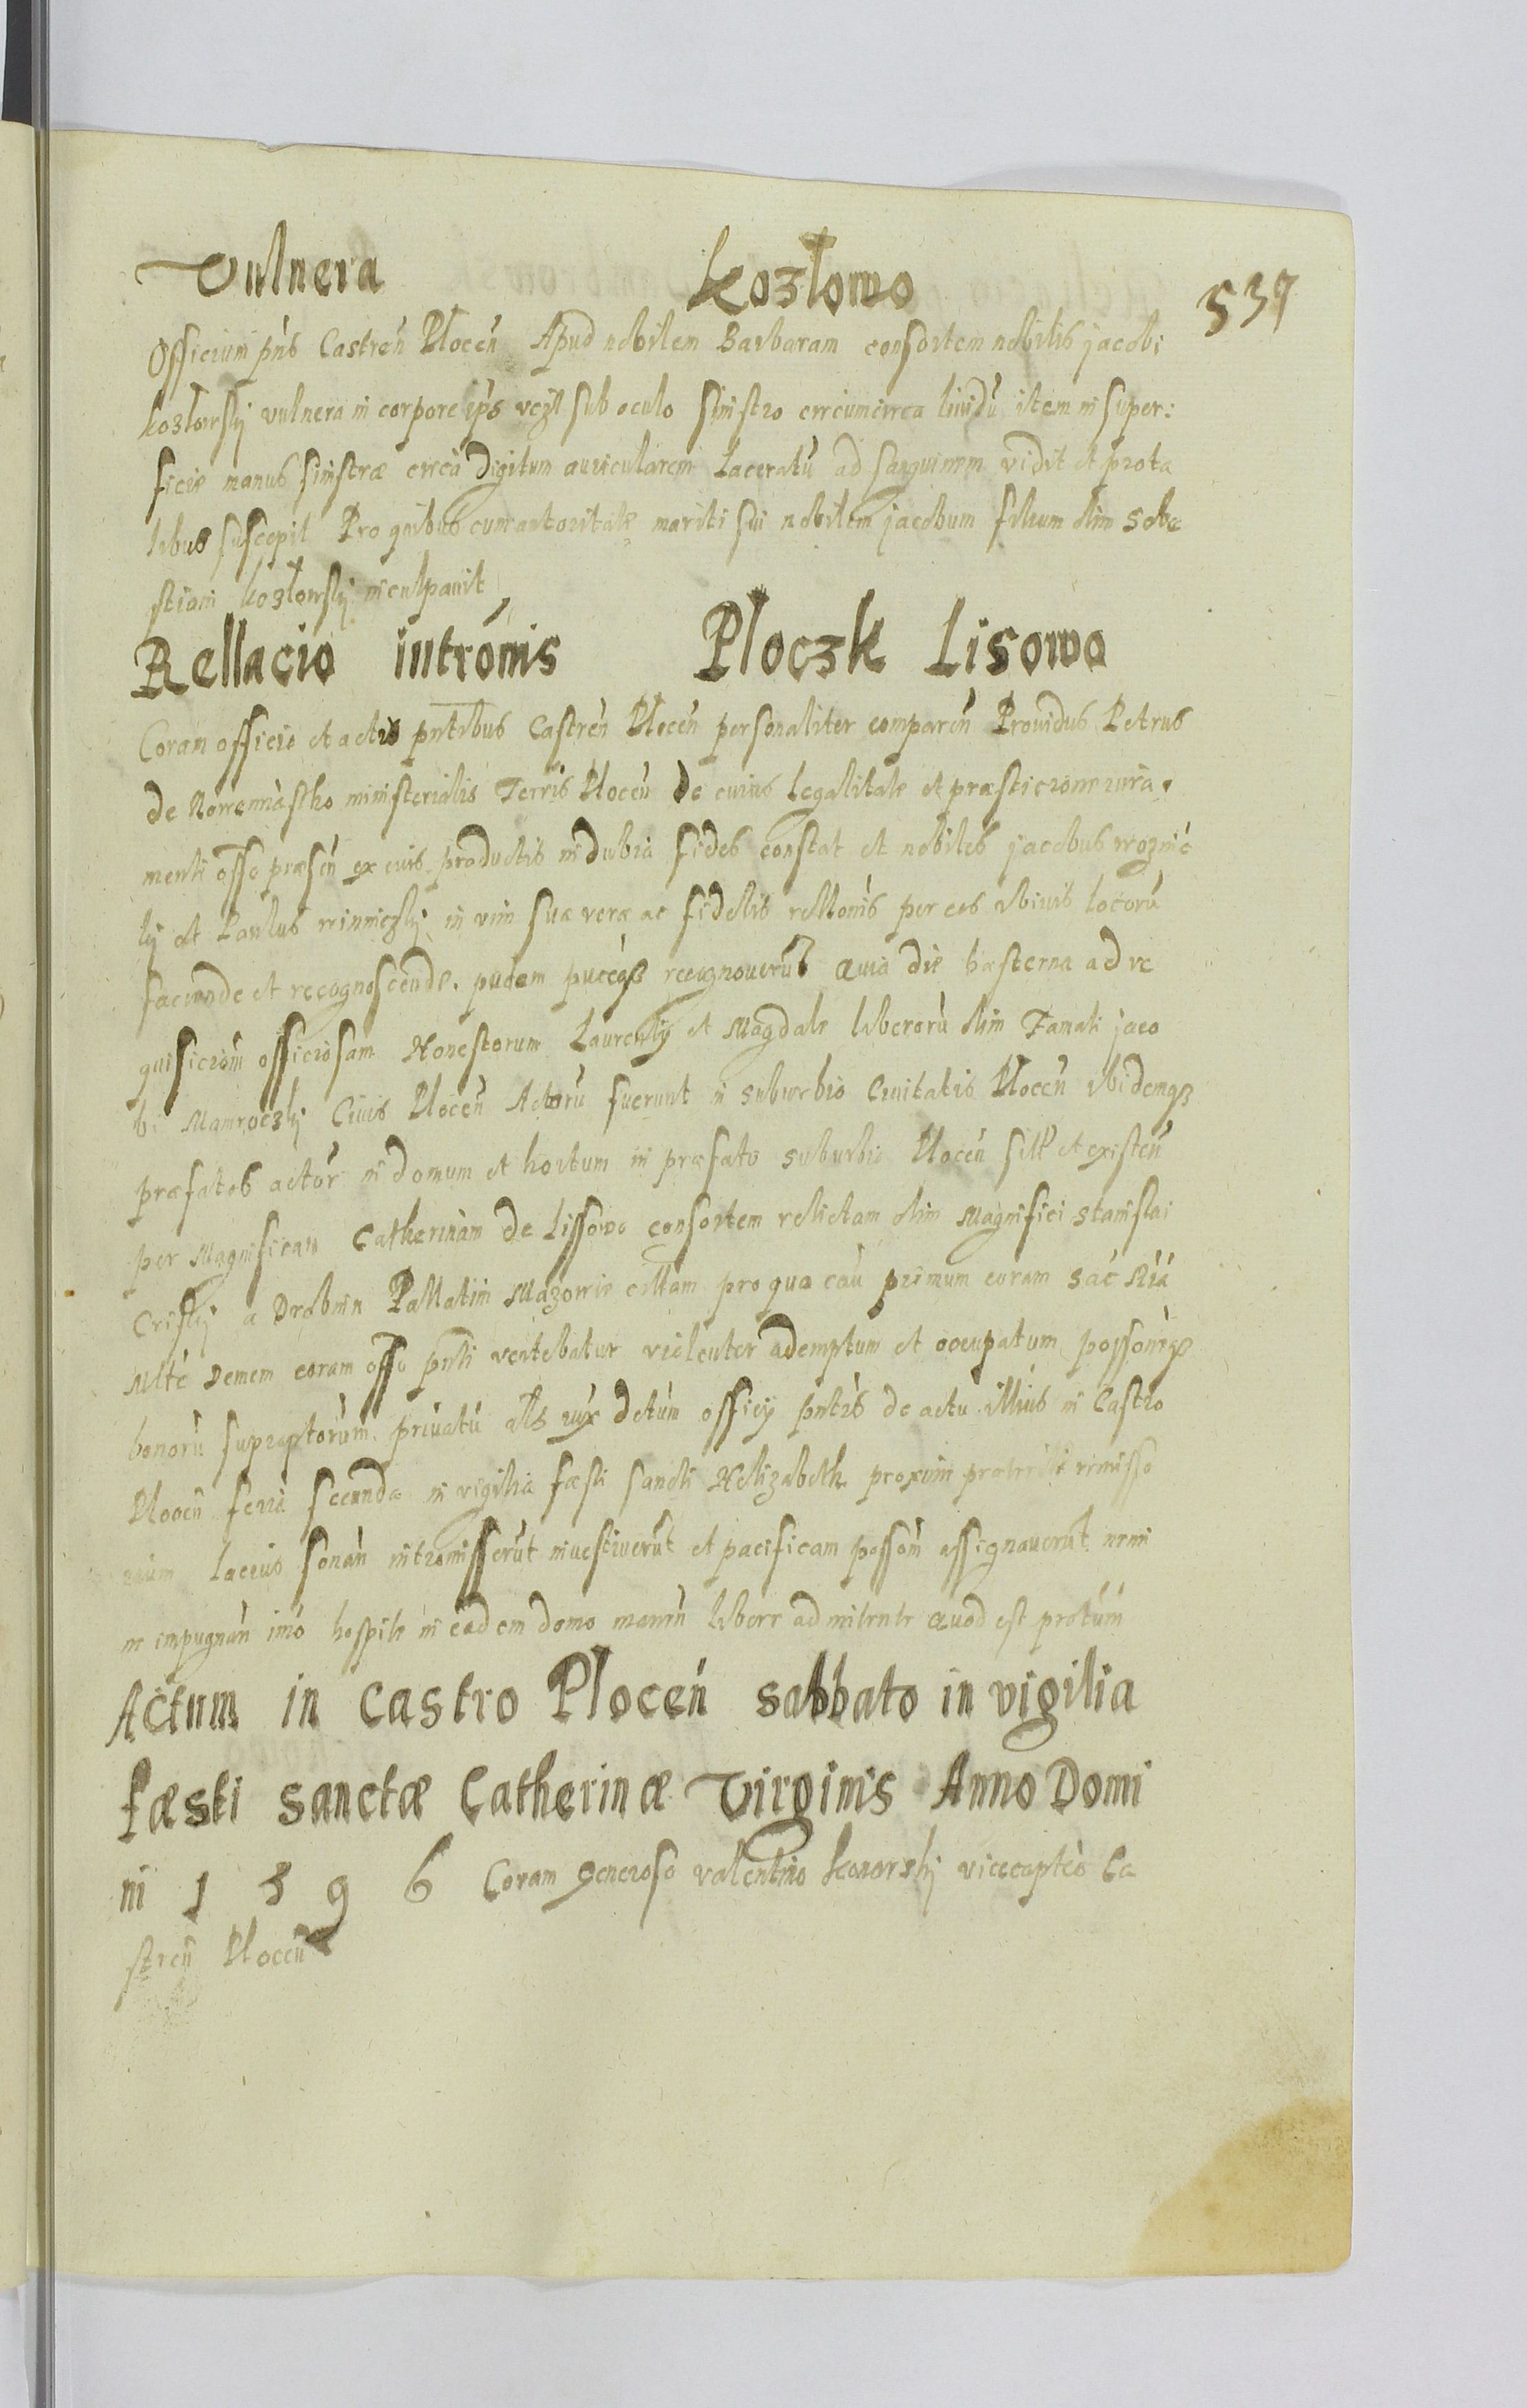 Vulnera Kozłowo 537
Officium pńs Castreń Płoceń Apud nobilem Barbaram consortem nobilis jacobi
kozłowskj vulnera in corpore ips vczt sub oculo sinistro circumcirca liuidu item in super:
ficie manus sinistræ circa digitum auricularem Laceratu ad sanguinem vidit et pro ta
libus suscepit Pro quibus cum autoritate mariti sui nobilem jacobum filium olim Seba
stiani kozłowskj inculpauit
Rellacio intromis Płoczk Lisowo
Coram officio et actis pntibus Castreń Płoceń personaliter compareń Prouidus Petrus
de Nowemiastho ministerialis Terris Płoceń de cuius legalitate et præsticione iura
menti offo præseń ex euis productis indubia fides constat et nobiles jacobus
et Paulus in vim suæ veræ ac fidelis rellonis per eos vbiuis locoru
faciende et recognoscende. recognouerut Quia die hæsterna ad re
quisiciom officiosam Honestorum Laurentij et Magdale liberoru olim Famati jaco
bi Mamroczkj Ciuis Płoceń Actoru fuerunt in suburbio Ciuitatis Płoceń ibidemqz
præfatos actor in domum et hortum in præfato suburbio Płoceń sitt et existeń
per Magnificam Catherinam de Lissowo consortem relictam olim Magnifici Stanislai
Criskj a Drobnin Pallatini Mazowie cittam pro qua cau primum coram Sac Ria
Mtte demem coram offo pnti vertebatur violenter ademptum et occupatum possoniqz
bonoru supraptorum priuatu als detum officij pntis de actu illius in Castro
Płoceń feria secunda in vigilia fæsti sancti Helizabeth proxim præteriti
lacius sonań intromisserut inuestiuerut et pacificam possom assignauerut nemi
ne impugnań imo hospite in eadem domo maneń libere admitente Quod est protum
Actum in Castro Płoceń sabbato in vigilia
fæsti sanctæ Catherinæ Virginis Anno Domi
ni 1 5 9 6 Coram Generoso valentino vicecapteo Ca
streń Płoceń